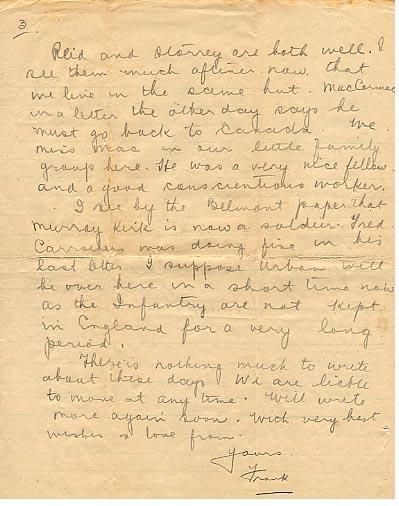 3.
Reid and Storrey are both well. I
see them much oftener now that
we live in the same hut. MacCormac
in a letter the other day says he
must go back to Canada. We
miss Mac in our little family
group here. He was a very nice fellow
and a good conscientious worker.
I see by the Belmont paper that
Murray Kirk is now a soldier. Fred
Carrothers was doing fine in his
last letter. I suppose Urban will
be over here in a short time now
as the Infantry are not kept
in England for a very long
period.
There is nothing much to write
about these days. We are liable
to move at any time. Will write
more again soon. With very best
wishes & love from.
Yours.
Frank